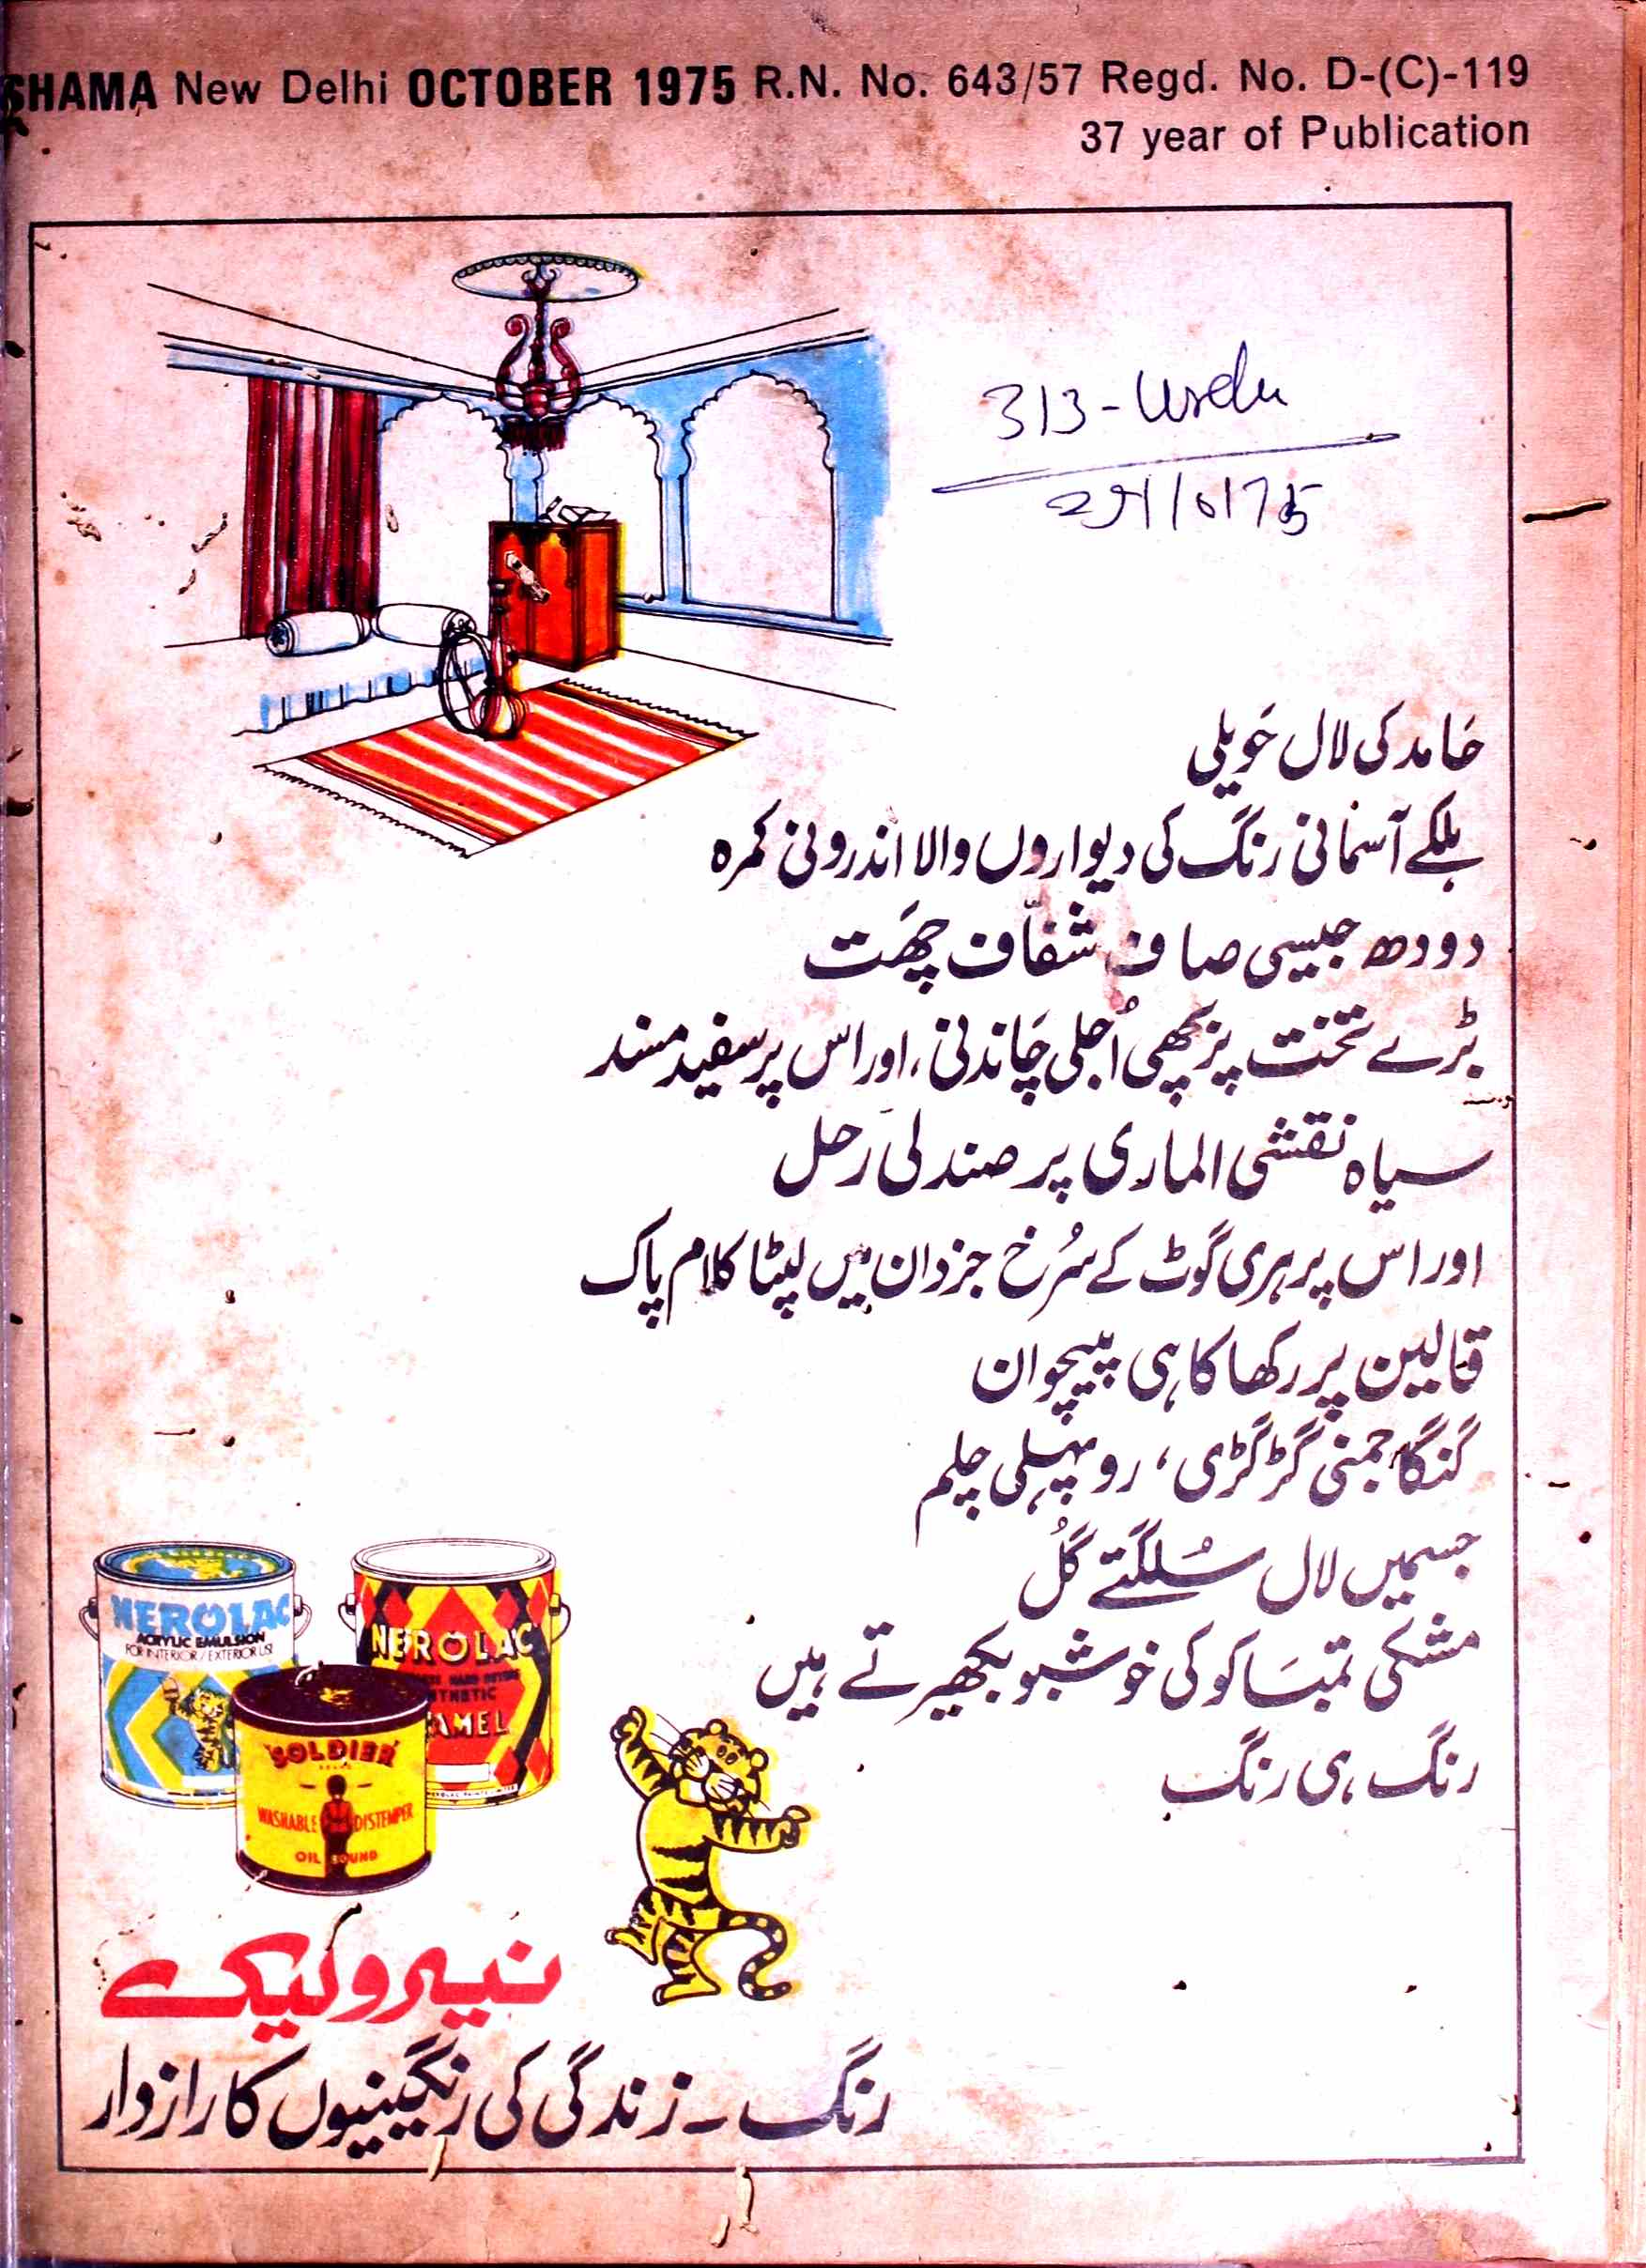 SHAMA New Delhi OCTOBER 1975 R.N. No. 643/57 Regd. No. D-(C)-119
37 year of Publication
313-Urdu
حَامد کی لال حَویلی
ہلکے آسمانی رنگ کی دیواروں والا اندرونی کمرہ
دودھ جیسی صاف شفّاف چھَت
بڑے تخت پر بچھی اُجلی چَاندنی، اور اس پر سفید مسند
سیاہ نقشی الماری پر صندلی رَحل
اور اس پر ہری گوٹ کے سُرخ جزدان میں لپٹا کلام پاک
قالین پر رکھا کاہی پیچوان
گنگا جمنی گڑگڑی، روپہلی چلم
جسمیں لال سُلگتے گُل
مشکی تمبَاکو کی خوشبو بکھیرتے ہیں
رنگ ہی رنگ
NEROLAC
ACRYLIC EMULSION
FOR INTERIOR/EXTERIOR USE
NEROLAC
SYNTHETIC
ENAMEL
'SOLDIER'
BRAND
WASHABLE DISTEMPER
OIL BOUND
نیرولیک
رنگ ۔ زندگی کی رنگینیوں کا رازدار